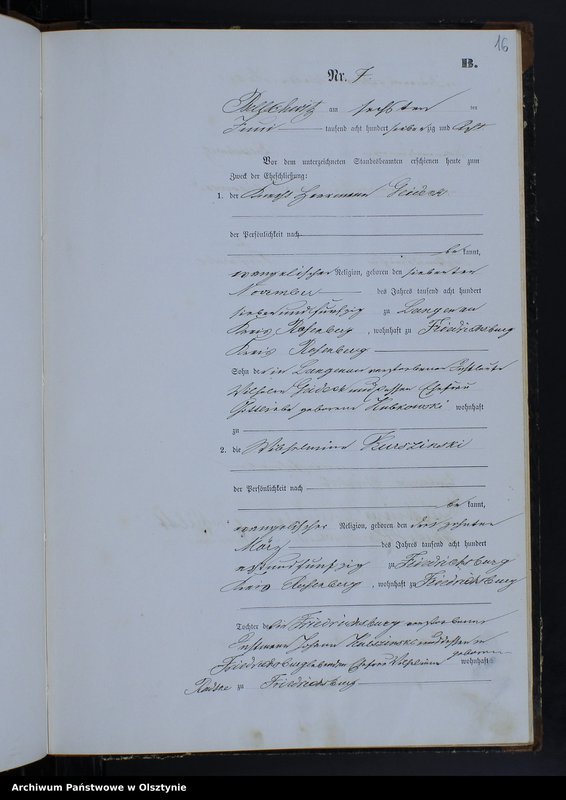 16
B.
Nr. 7
am sechsten ten
Juni tausend acht hundert siebenzig und Acht
Vor dem unterzeichneten Standesbeamten erschienen heute zum
Zweck der Eheschließung:
1. der Knecht Herrmann
der Persönlichkeit nach
be kannt,
evangelischer Religion, geboren den siebenten
November des Jahres tausend acht hundert
siebenundfunfzig zu Langenau
Kreis Rosenberg, wohnhaft zu Friedrichsburg
Kreis Rosenberg
Sohn des in Langenau verstorbenen
Wilhelm und dessen Ehefrau
geborene wohnhaft
zu
2. die Wilhelmine Kurszinski
der Persönlichkeit nach
be kannt,
evangelischer Religion, geboren den
März des Jahres tausend acht hundert
zu Friedrichsburg
Kreis Rosenberg, wohnhaft zu Friedrichsburg
Tochter des in Friedrichsburg verstorbenen
Johann und dessen in
Friedrichsburg lebenden Ehefrau Wilhelmine geborene wohnhaft
zu Friedrichsburg
Archiwum Państwowe w Olsztynie